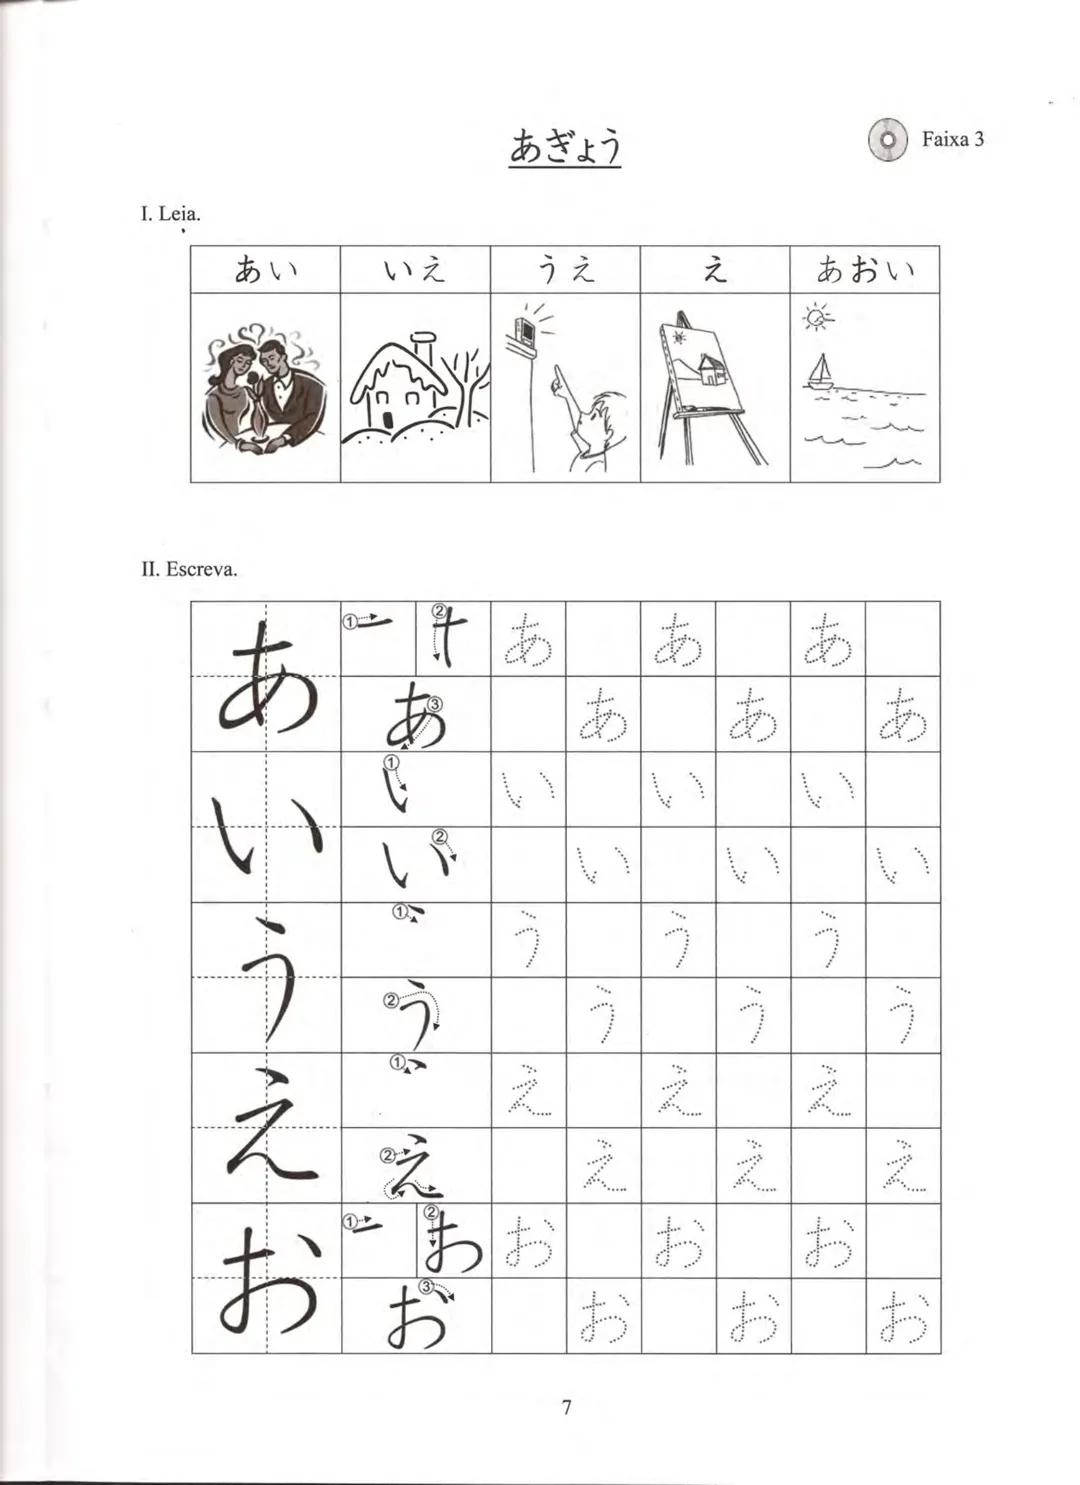 あぎょう
Faixa 3
I. Leia.
あい いえ うえ え あおい
II. Escreva.
あ ① ② あ あ あ
③ あ あ あ あ
い ① い い い い
② い い い い
う ① う う う
② う う う う
え ① え え え
② え え え え
お ① ② お お お お
③ お お お お
7